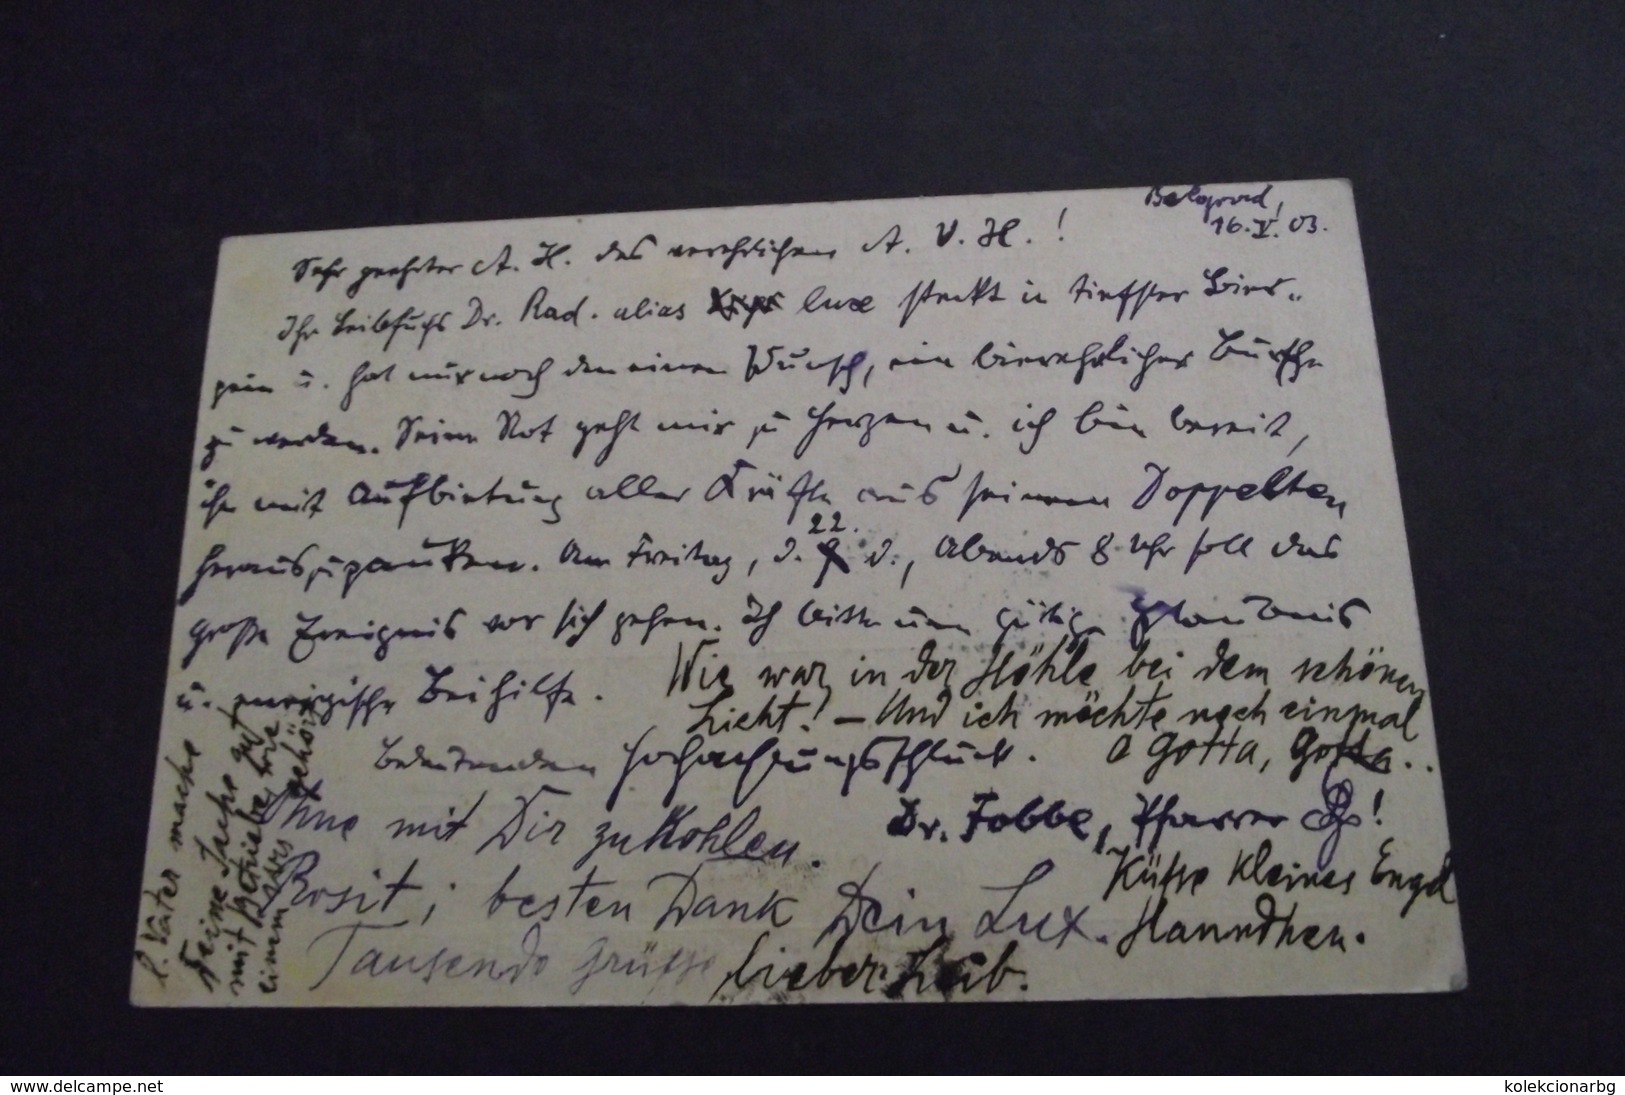 Belgrad,
16. V. 03.
Sehr geehrter A. H. des verehrlichen A. V. H.!
Ihr Leibfuchs Dr. Rad. alias Luxe steckt in tiefster Bier-
pein u. hat nur noch den einen Wunsch, ein bierehrlicher Bursche
zu werden. Seine Not geht mir zu Herzen u. ich bin bereit,
ihn mit Aufbietung aller Kräfte aus seinem Doppelten
herauszupauken. Am Freitag, d. 22. d., Abends 8 Uhr soll das
große Ereignis vor sich gehen. Ich bitte um gütige Erlaubnis
u. energische Beihilfe.
Wie war in der Höhle bei dem schönen
Licht! – Und ich möchte noch einmal
O Gotta, Gotta..
Bedeutenden Hochachtungsschluck.
Dr. Fobbe, Pfarrer!
Ohne mit Dir zu Kohlen.
Küsse kleines Engel
Hanndhen.
Prosit; besten Dank Dein Lux.
Tausende Grüsse lieber Leib.
l. Vater mache
Deine Sache gut
mit Betriebe wie
einem gehört